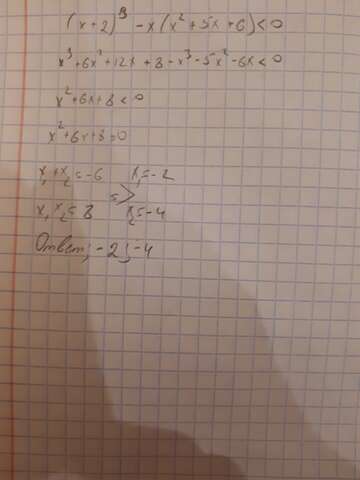 (x+2)³ - x(x²+5x+6)<0
x³+6x²+12x+8-x³-5x²-6x<0
x²+6x+8<0
x²+6x+8=0
x₁+x₂=-6 x₁=-2
=>
x₁x₂=8 x₂=-4
Ответ: -2; -4